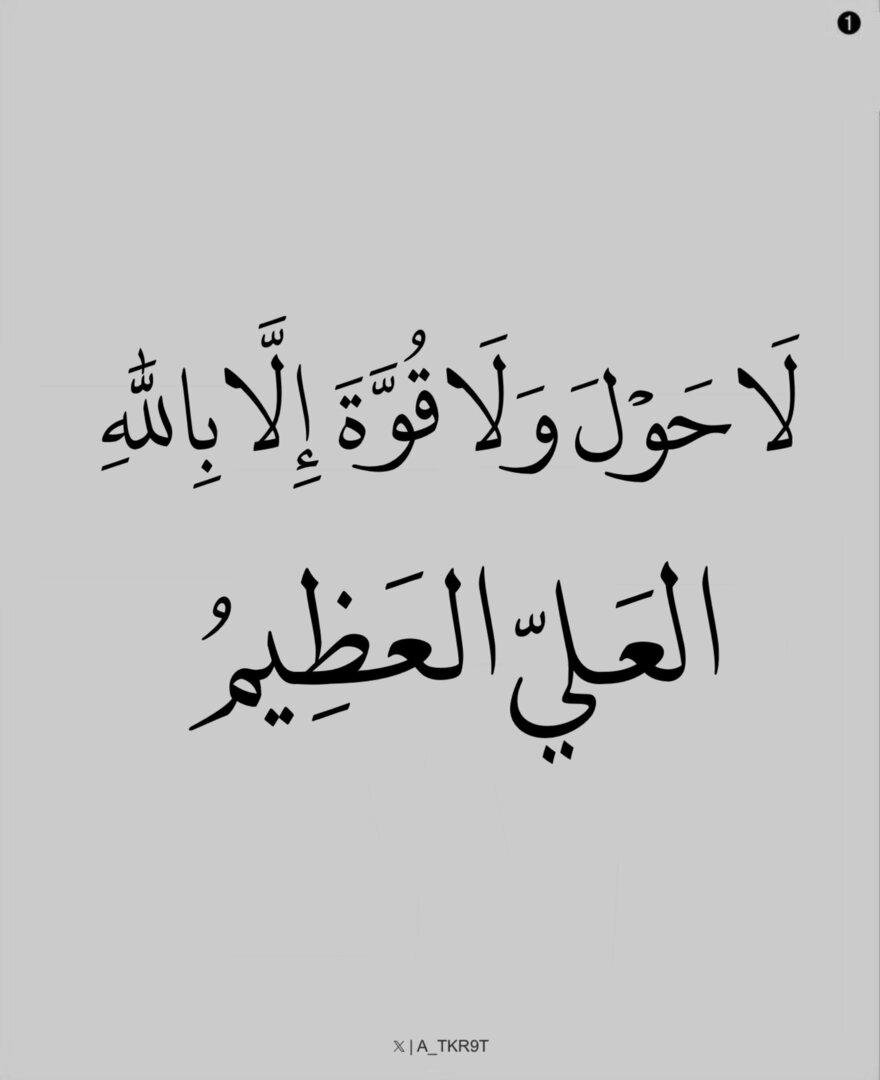 ❶
لَا حَوْلَ وَلَا قُوَّةَ إِلَّا بِاللّٰهِ
العَليّ العَظِيمُ
𝕏 | A_TKR9T